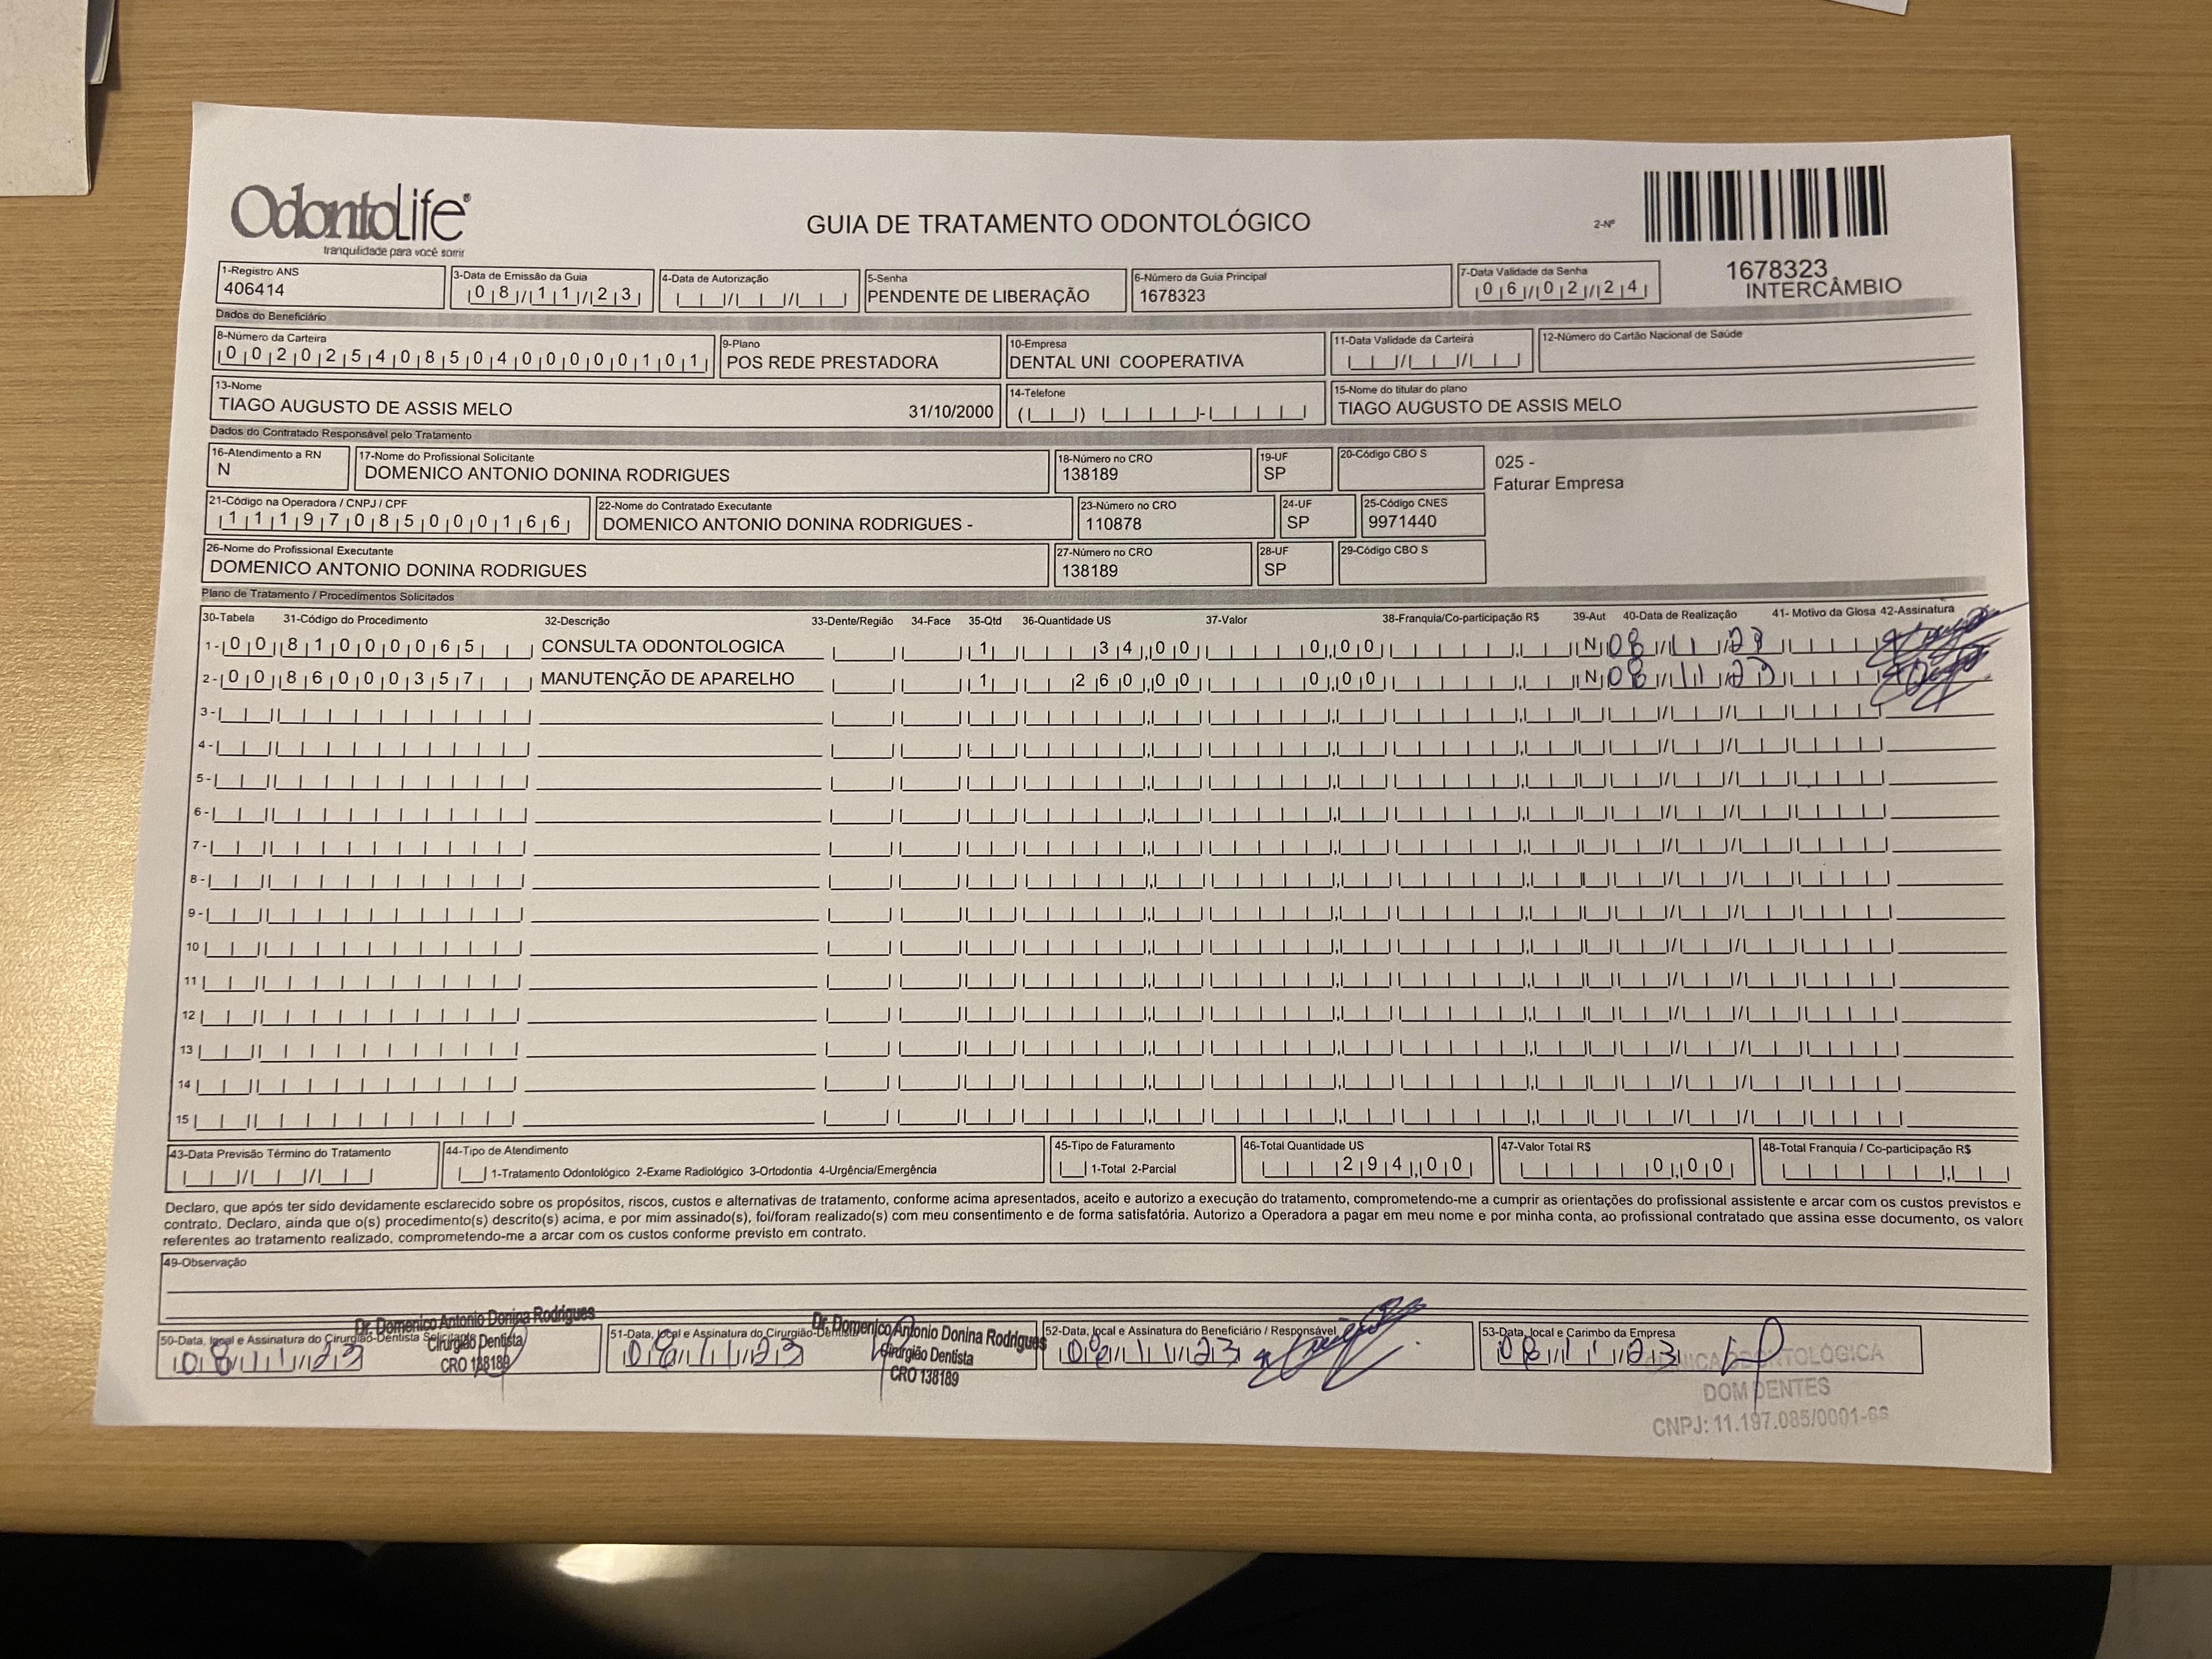 OdontoLife®
tranquilidade para você sorrir
GUIA DE TRATAMENTO ODONTOLÓGICO
2-Nº
1678323
INTERCÂMBIO
1-Registro ANS
406414
3-Data de Emissão da Guia
08/11/23
4-Data de Autorização
5-Senha
PENDENTE DE LIBERAÇÃO
6-Número da Guia Principal
1678323
7-Data Validade da Senha
06/02/24
Dados do Beneficiário
8-Número da Carteira
00202540850400000101
9-Plano
POS REDE PRESTADORA
10-Empresa
DENTAL UNI COOPERATIVA
11-Data Validade da Carteira
12-Número do Cartão Nacional de Saúde
13-Nome
TIAGO AUGUSTO DE ASSIS MELO 31/10/2000
14-Telefone
15-Nome do titular do plano
TIAGO AUGUSTO DE ASSIS MELO
Dados do Contratado Responsável pelo Tratamento
16-Atendimento a RN
N
17-Nome do Profissional Solicitante
DOMENICO ANTONIO DONINA RODRIGUES
18-Número no CRO
138189
19-UF
SP
20-Código CBO S
025 -
Faturar Empresa
21-Código na Operadora / CNPJ / CPF
11197085000166
22-Nome do Contratado Executante
DOMENICO ANTONIO DONINA RODRIGUES -
23-Número no CRO
110878
24-UF
SP
25-Código CNES
9971440
26-Nome do Profissional Executante
DOMENICO ANTONIO DONINA RODRIGUES
27-Número no CRO
138189
28-UF
SP
29-Código CBO S
Plano de Tratamento / Procedimentos Solicitados
30-Tabela 31-Código do Procedimento 32-Descrição 33-Dente/Região 34-Face 35-Qtd 36-Quantidade US 37-Valor 38-Franquia/Co-participação R$ 39-Aut 40-Data de Realização 41- Motivo da Glosa 42-Assinatura
1- 00 81000065 CONSULTA ODONTOLOGICA 1 34,00 0,00 N 08/11/23
2- 00 86000357 MANUTENÇÃO DE APARELHO 1 260,00 0,00 N 08/11/23
3-
4-
5-
6-
7-
8-
9-
10
11
12
13
14
15
43-Data Previsão Término do Tratamento
44-Tipo de Atendimento
1-Tratamento Odontológico 2-Exame Radiológico 3-Ortodontia 4-Urgência/Emergência
45-Tipo de Faturamento
1-Total 2-Parcial
46-Total Quantidade US
294,00
47-Valor Total R$
0,00
48-Total Franquia / Co-participação R$
Declaro, que após ter sido devidamente esclarecido sobre os propósitos, riscos, custos e alternativas de tratamento, conforme acima apresentados, aceito e autorizo a execução do tratamento, comprometendo-me a cumprir as orientações do profissional assistente e arcar com os custos previstos e
contrato. Declaro, ainda que o(s) procedimento(s) descrito(s) acima, e por mim assinado(s), foi/foram realizado(s) com meu consentimento e de forma satisfatória. Autorizo a Operadora a pagar em meu nome e por minha conta, ao profissional contratado que assina esse documento, os valore
referentes ao tratamento realizado, comprometendo-me a arcar com os custos conforme previsto em contrato.
49-Observação
50-Data, local e Assinatura do Cirurgião-Dentista Solicitante
08/11/23
Dr. Domenico Antonio Donina Rodrigues
Cirurgião Dentista
CRO 138189
51-Data, local e Assinatura do Cirurgião-Dentista
08/11/23
Dr. Domenico Antonio Donina Rodrigues
Cirurgião Dentista
CRO 138189
52-Data, local e Assinatura do Beneficiário / Responsável
08/11/23
53-Data, local e Carimbo da Empresa
08/11/23
CLÍNICA ODONTOLÓGICA
DOM DENTES
CNPJ: 11.197.085/0001-66